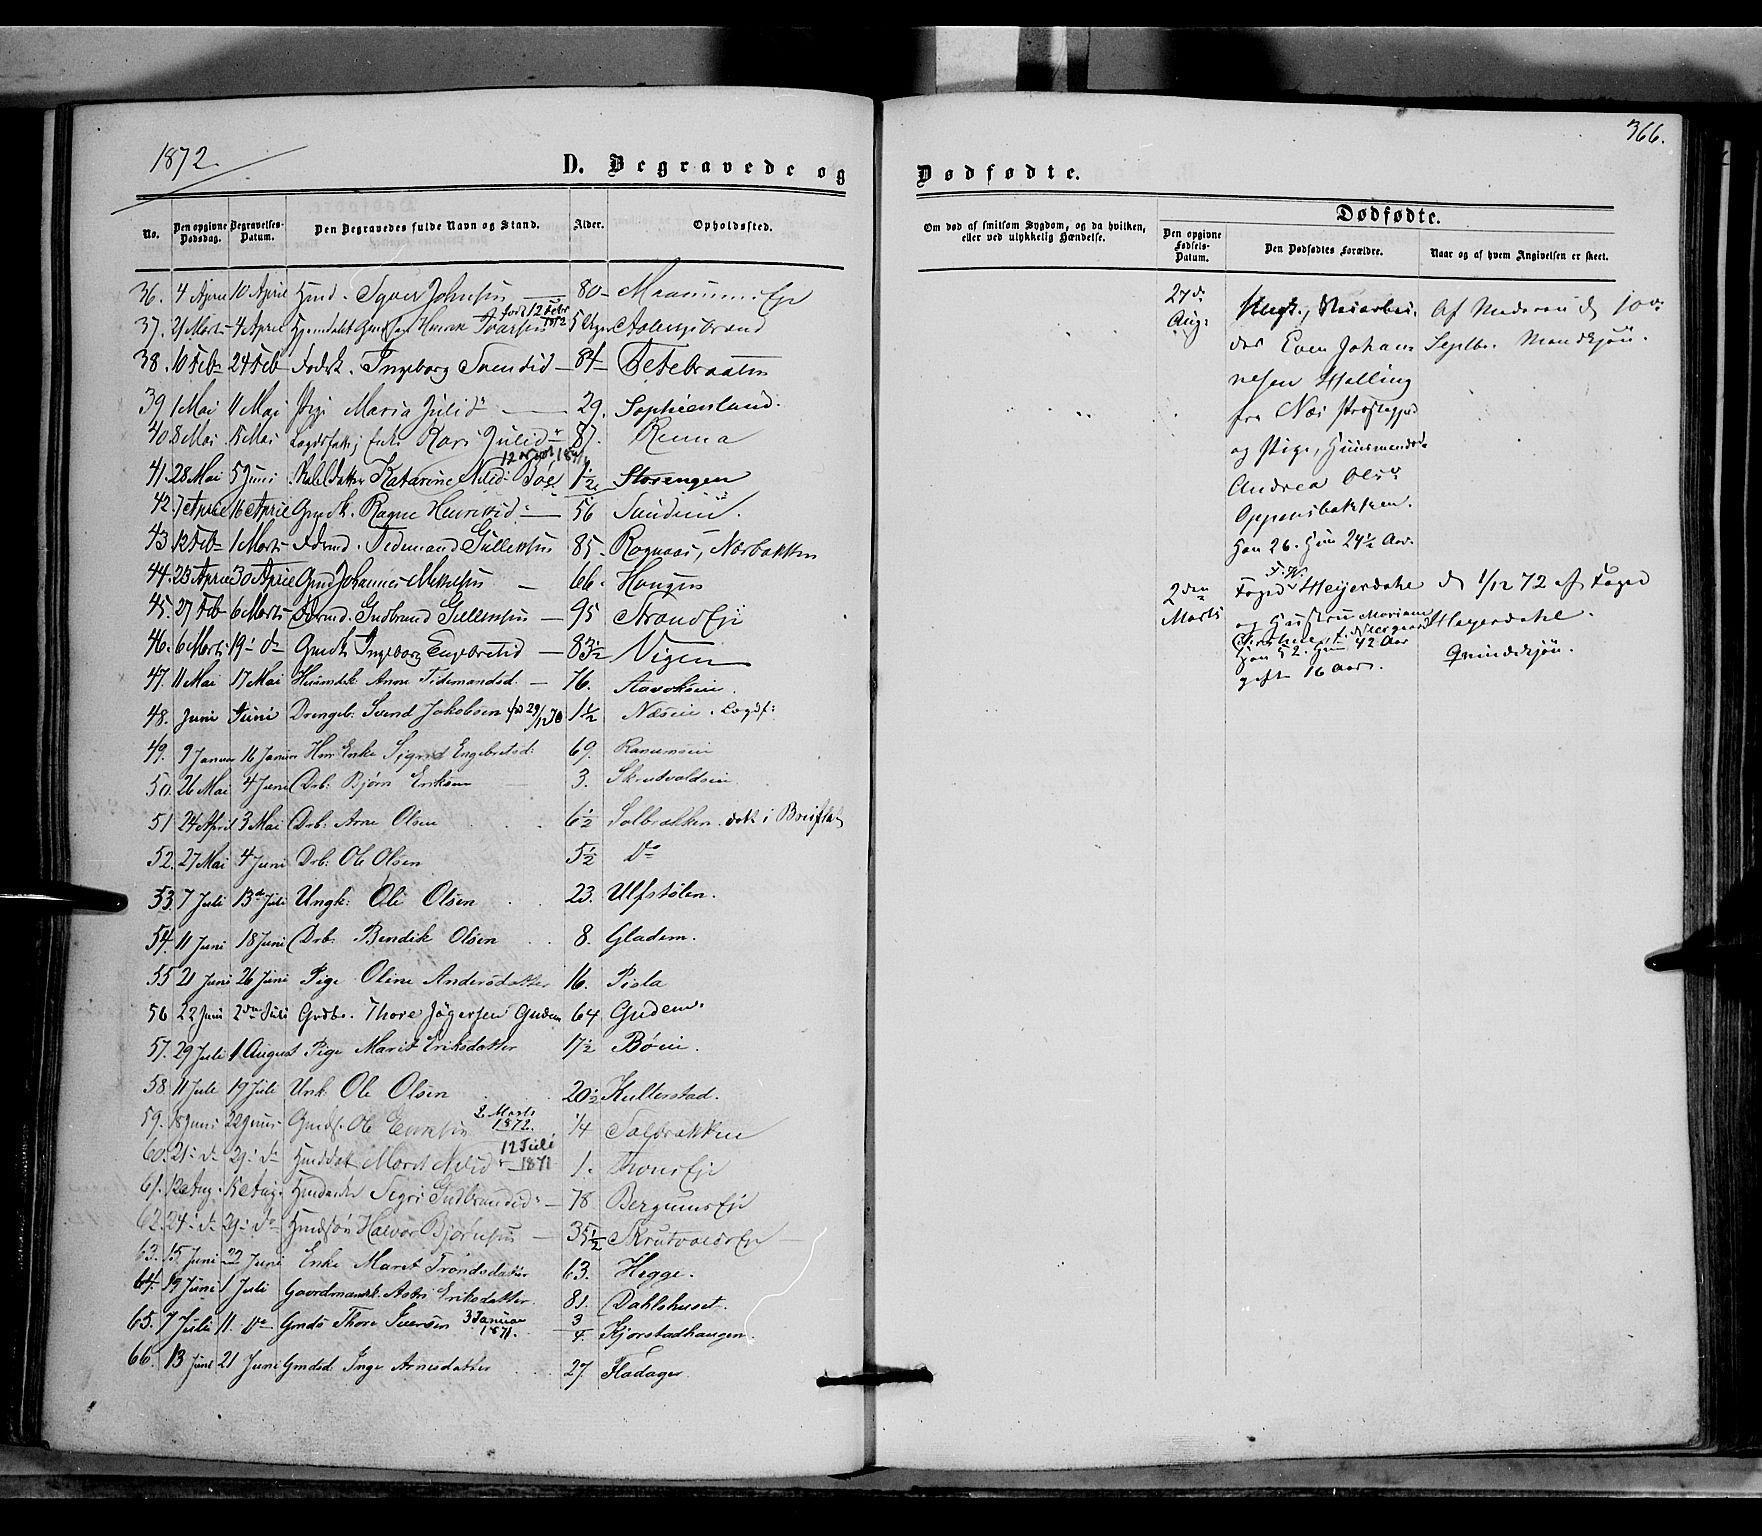 1872.
D. Begravede og
No. Den opgivne Dødsdag. Begravelses-Datum. Den Begravedes fulde Navn og Stand. Alder. Opholdssted.
36. 4 April 10 April Hmd. Iver Johnsen 80
37. 21 Marts 4 April Henrik Ivarsen født 12 Febr 1872 5 Uger
38. 10 Feb 24 Feb Ingeborg Svendsd 84 Tetebraaten
39 1 Mai 11 Mai Pige Maria Julid 29. Sophienlund.
40. 8 Mai 15 Mai Enke Kari Julid 87. Renna
41. 28 Mai 5 Juni Katarine Nilsd. Bøe 1 1/2 Storengen
42. 7 April 16 April Gmdk. Ragne Henriksd 56
43. 12 Feb 1 Marts Tidemand Gulleksen 85 Rognaas, Nørbakken
44. 23 April 30 April Gmd Johannes Mikkelsen 66. Haugen
45. 27 Feb 6 Marts Gudbrand Gulleksen 95 Strand Eje
46. 6 Marts 19 do Gmdk Ingeborg Engebretsd 83 1/2 Vigen
47. 11 Mai 17 Mai Huusmdk. Anne Tidemandsd. 76.
48. Juni Juni Drengeb. Svend Jakobsen fød 29/12 70 1 1/2 Næseie. Lægdf:
49. 9 Januar 16 Januar Hm. Enke Sigrid Engebretsd: 69. Ranumseie
50. 26 Mai 4 Juni Drb: Bjørn Eriksen 3. Skrutvoldseie
51 24 April 3 Mai Drb: Arne Olsen 6 1/2 Solbrækken. død i Breiflat
52. 27 Mai 4 Juni Drb: Ole Olsen 5 1/2 Do
53. 7 Juli 13de Juli Ungk: Ole Olsen 23. Ulfstølen.
54. 11 Juni 18 Juni Drb. Bendik Olsen 8. Gladem.
55 21 Juni 26 Juni Pige Oline Andersdatter 16. Piola
56 22 Juni 2den Juli Grdbr. Thore Jøgersen Gudem 64 Gudem.
57. 29 Juli 1 August Pige Marit Eriksdatter 17 1/2 Bøeie.
58. 11 Juli 19 Juli Unk. Ole Olsen 20 1/2 Kullerstad.
59. 18 Juni 22 Juni Gmds. Ole 2 Marts 1872. 1/4 Solbrækken
60. 21 do 29 do Marit Nilsd 12 Juli 1871 1. Thons Eje
61. 12 Aug. 15 Aug. Sigri Gudbrandsd 78 Bergums Eje
62. 24 do 29 do Hmdsøn Halvor Bjørnsen 35 1/2 Skrutvolds Eje
63. 15 Juni 22 Juni Enke Marit Trondsdatter 63. Hegge.
64. 19 Juni 1 Juli Gaardmandsk. Astri Eriksdatter. 81. Dahlshuset.
65. 7 Juli 11 do Gmds Thore Iversen 3 Januar 1871. 3/4. Kjørstadhaugen.
66. 13 Juni 21 Juni Gmdsd. Inge Arnesdatter 27. Fladager.
366.
Dødfødte.
Om død af smitsom Sygdom, og da hvilken, eller ved ulykkelig Hændelse.
Dødfødte.
Den opgivne Fødsels-Datum. Den Dødfødtes Forældre. Naar og af hvem Angivelsen er skeet.
27de Aug: Ungk.,
der Even Johan-
nesen Halling
fra Næs Præstegjd
og Pige, Huusmandsd.
Andrea Olsd
Oppensbakken.
Han 26. Hun 24 1/2 Aar.
Af Moderen d 10de
Septbr. Mandkjøn.
2den Marts
Foged F. W. Heyerdahl
og Hustru Mariane
Han 52. Hun 42 Aar
gift 16 Aar.
d 1/12 72 af Foged
Heyerdahl.
Qvindekjøn.